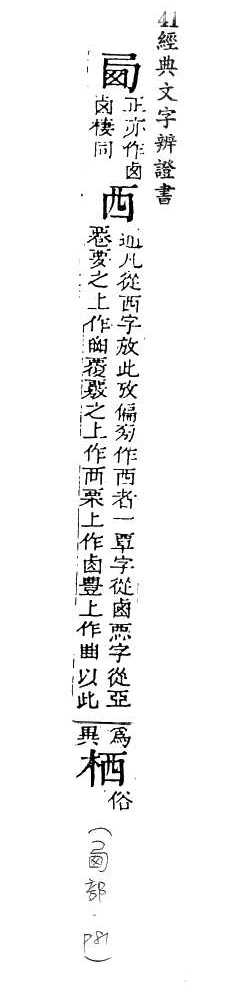 41經典文字辨證書
正亦作卤
卤棲同
西
通凡從西字放此攷偏旁作西者一覃字從鹵悪字從亞
要之上作覆覈之上作襾栗上作卤豐上作曲以此
爲
異
栖
俗
(部.P81)